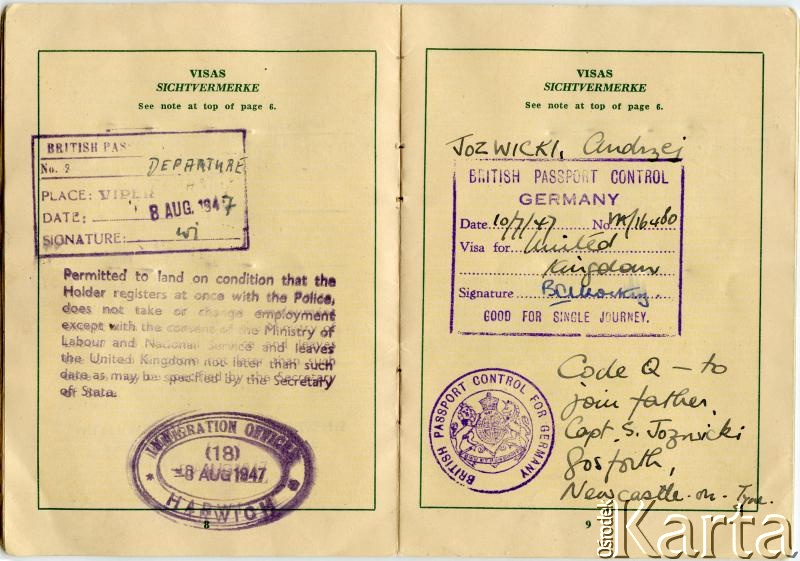 VISAS
SICHTVERMERKE
See note at top of page 6.
BRITISH PAS
No. 2 DEPARTURE
PLACE:
DATE: 8 AUG. 1947
SIGNATURE:
Permitted to land on condition that the
Holder registers at once with the Police,
does not take or change employment
except with the consent of the Ministry of
Labour and National Service and leaves
the United Kingdom not later than such
date as may be specified by the Secretary
of State.
IMMIGRATION OFFICER
(18)
-8 AUG 1947
HARWICH
8
VISAS
SICHTVERMERKE
See note at top of page 6.
JOZWICKI, Andrzej
BRITISH PASSPORT CONTROL
GERMANY
Date 10/7/47 No.
Visa for United
Kingdom
Signature
GOOD FOR SINGLE JOURNEY.
BRITISH PASSPORT CONTROL FOR GERMANY
Code Q – to
join father,
Capt. S. Jozwicki
Gosforth,
Newcastle-on-Tyne.
9
Ośrodek
Karta